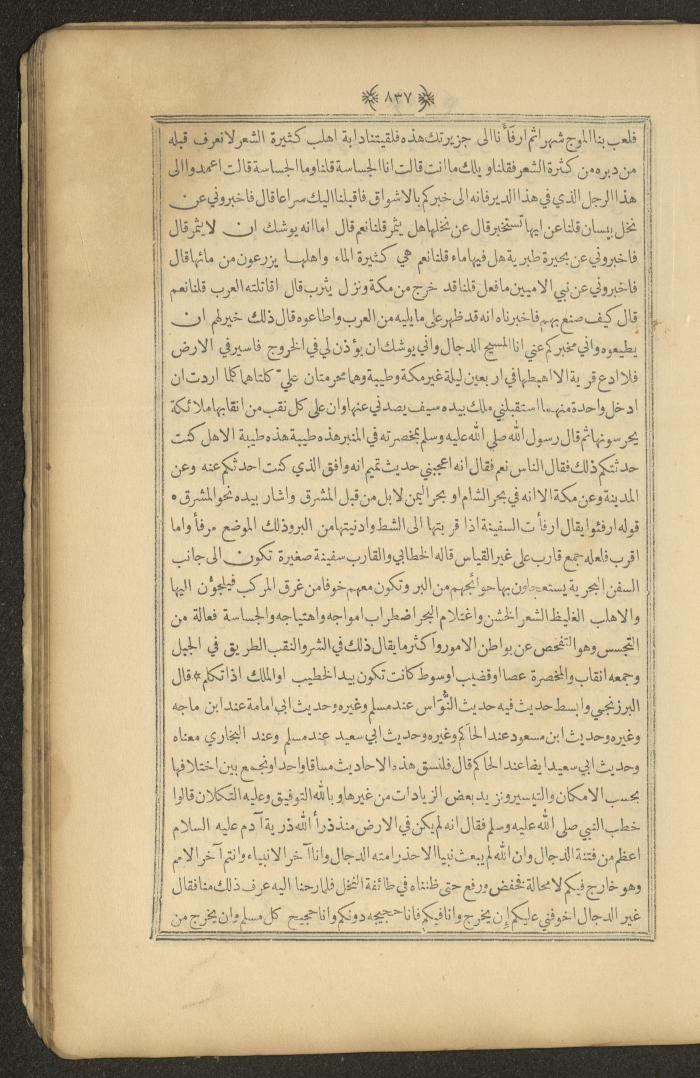 ٨٣٧
فلعب بنا الموج شهرا ثم ارفأنا الى جزيرتك هذه فلقيتنا دابة اهلب كثيرة الشعر لا نعرف قبله
من دبره من كثرة الشعر فقلنا ويلك ما انت قالت انا الجساسة قلنا وما الجساسة قالت اعمدوا الى
هذا الرجل الذي في هذا الدير فانه الى خبركم بالاشواق فاقبلنا اليك سراعا قال فاخبروني عن
نخل بيسان قلنا عن ايها تستخبر قال عن نخلها هل يثمر قلنا نعم قال اما انه يوشك ان لا يثمر قال
فاخبروني عن بحيرة طبرية هل فيها ماء قلنا نعم هي كثيرة الماء واهلها يزرعون من مائها قال
فاخبروني عن نبي الاميين ما فعل قلنا قد خرج من مكة ونزل يثرب قال اقاتلته العرب قلنا نعم
قال كيف صنع بهم فاخبرناه انه قد ظهر على ما يليه من العرب واطاعوه قال ذلك خير لهم ان
يطيعوه واني مخبركم عني انا المسيح الدجال واني يوشك ان يؤذن لي في الخروج فاسير في الارض
فلا ادع قرية الا اهبطها في اربعين ليلة غير مكة وطيبة وهما محرمتان عليّ كلتاهما كلما اردت ان
ادخل واحدة منهما استقبلني ملك بيده سيف يصدني عنها وان على كل نقب من انقابها ملائكة
يحرسونها ثم قال رسول الله صلى الله عليه وسلم بمخصرته في المنبر هذه طيبة هذه طيبة الاهل كنت
حدثتكم ذلك فقال الناس نعم فقال انه اعجبني حديث تميم انه وافق الذي كنت احدثكم عنه وعن
المدينة وعن مكة الا انه في بحر الشام او بحر اليمن لا بل من قبل المشرق واشار بيده نحو المشرق ه
قوله ارفئوا يقال ارفأت السفينة اذا قربتها الى الشط وادنيتها من البر وذلك الموضع مرفأ واما
اقرب فلعله جمع قارب على غير القياس قاله الخطابي والقارب سفينة صغيرة تكون الى جانب
السفن البحرية يستعجلون بها حوائجهم من البر وتكون معهم خوفا من غرق المركب فيلجؤن اليها
والاهلب الغليظ الشعر الخشن واغتلام البحر اضطراب امواجه واهتياجه والجساسة فعالة من
التجسس وهو التفحص عن بواطن الامور واكثر ما يقال ذلك في الشر والنقب الطريق في الجبل
وجمعه انقاب والمخصرة عصا او قضيب او سوط كانت تكون بيد الخطيب او الملك اذا تكلم * قال
البرزنجي وابسط حديث فيه حديث النُّوّاس عند مسلم وغيره وحديث ابي امامة عند ابن ماجه
وغيره وحديث ابن مسعود عند الحاكم وغيره وحديث ابي سعيد عند مسلم وعند البخاري معناه
وحديث ابي سعيد ايضا عند الحاكم قال فلنسق هذه الاحاديث مساقا واحدا ونجمع بين اختلافها
بحسب الامكان والتيسير ونزيد بعض الزيادات من غيرها وبالله التوفيق وعليه التكلان قالوا
خطب النبي صلى الله عليه وسلم فقال انه لم يكن في الارض منذ ذرأ الله ذرية آدم عليه السلام
اعظم من فتنة الدجال وان الله لم يبعث نبيا الا حذر امته الدجال وانا آخر الانبياء وانتم آخر الامم
وهو خارج فيكم لا محالة فخفض ورفع حتى ظنناه في طائفة النخل فلما رحنا اليه عرف ذلك منا فقال
غير الدجال اخوفني عليكم إن يخرج وانا فيكم فانا حجيجه دونكم وانا حجيج كل مسلم وان يخرج من